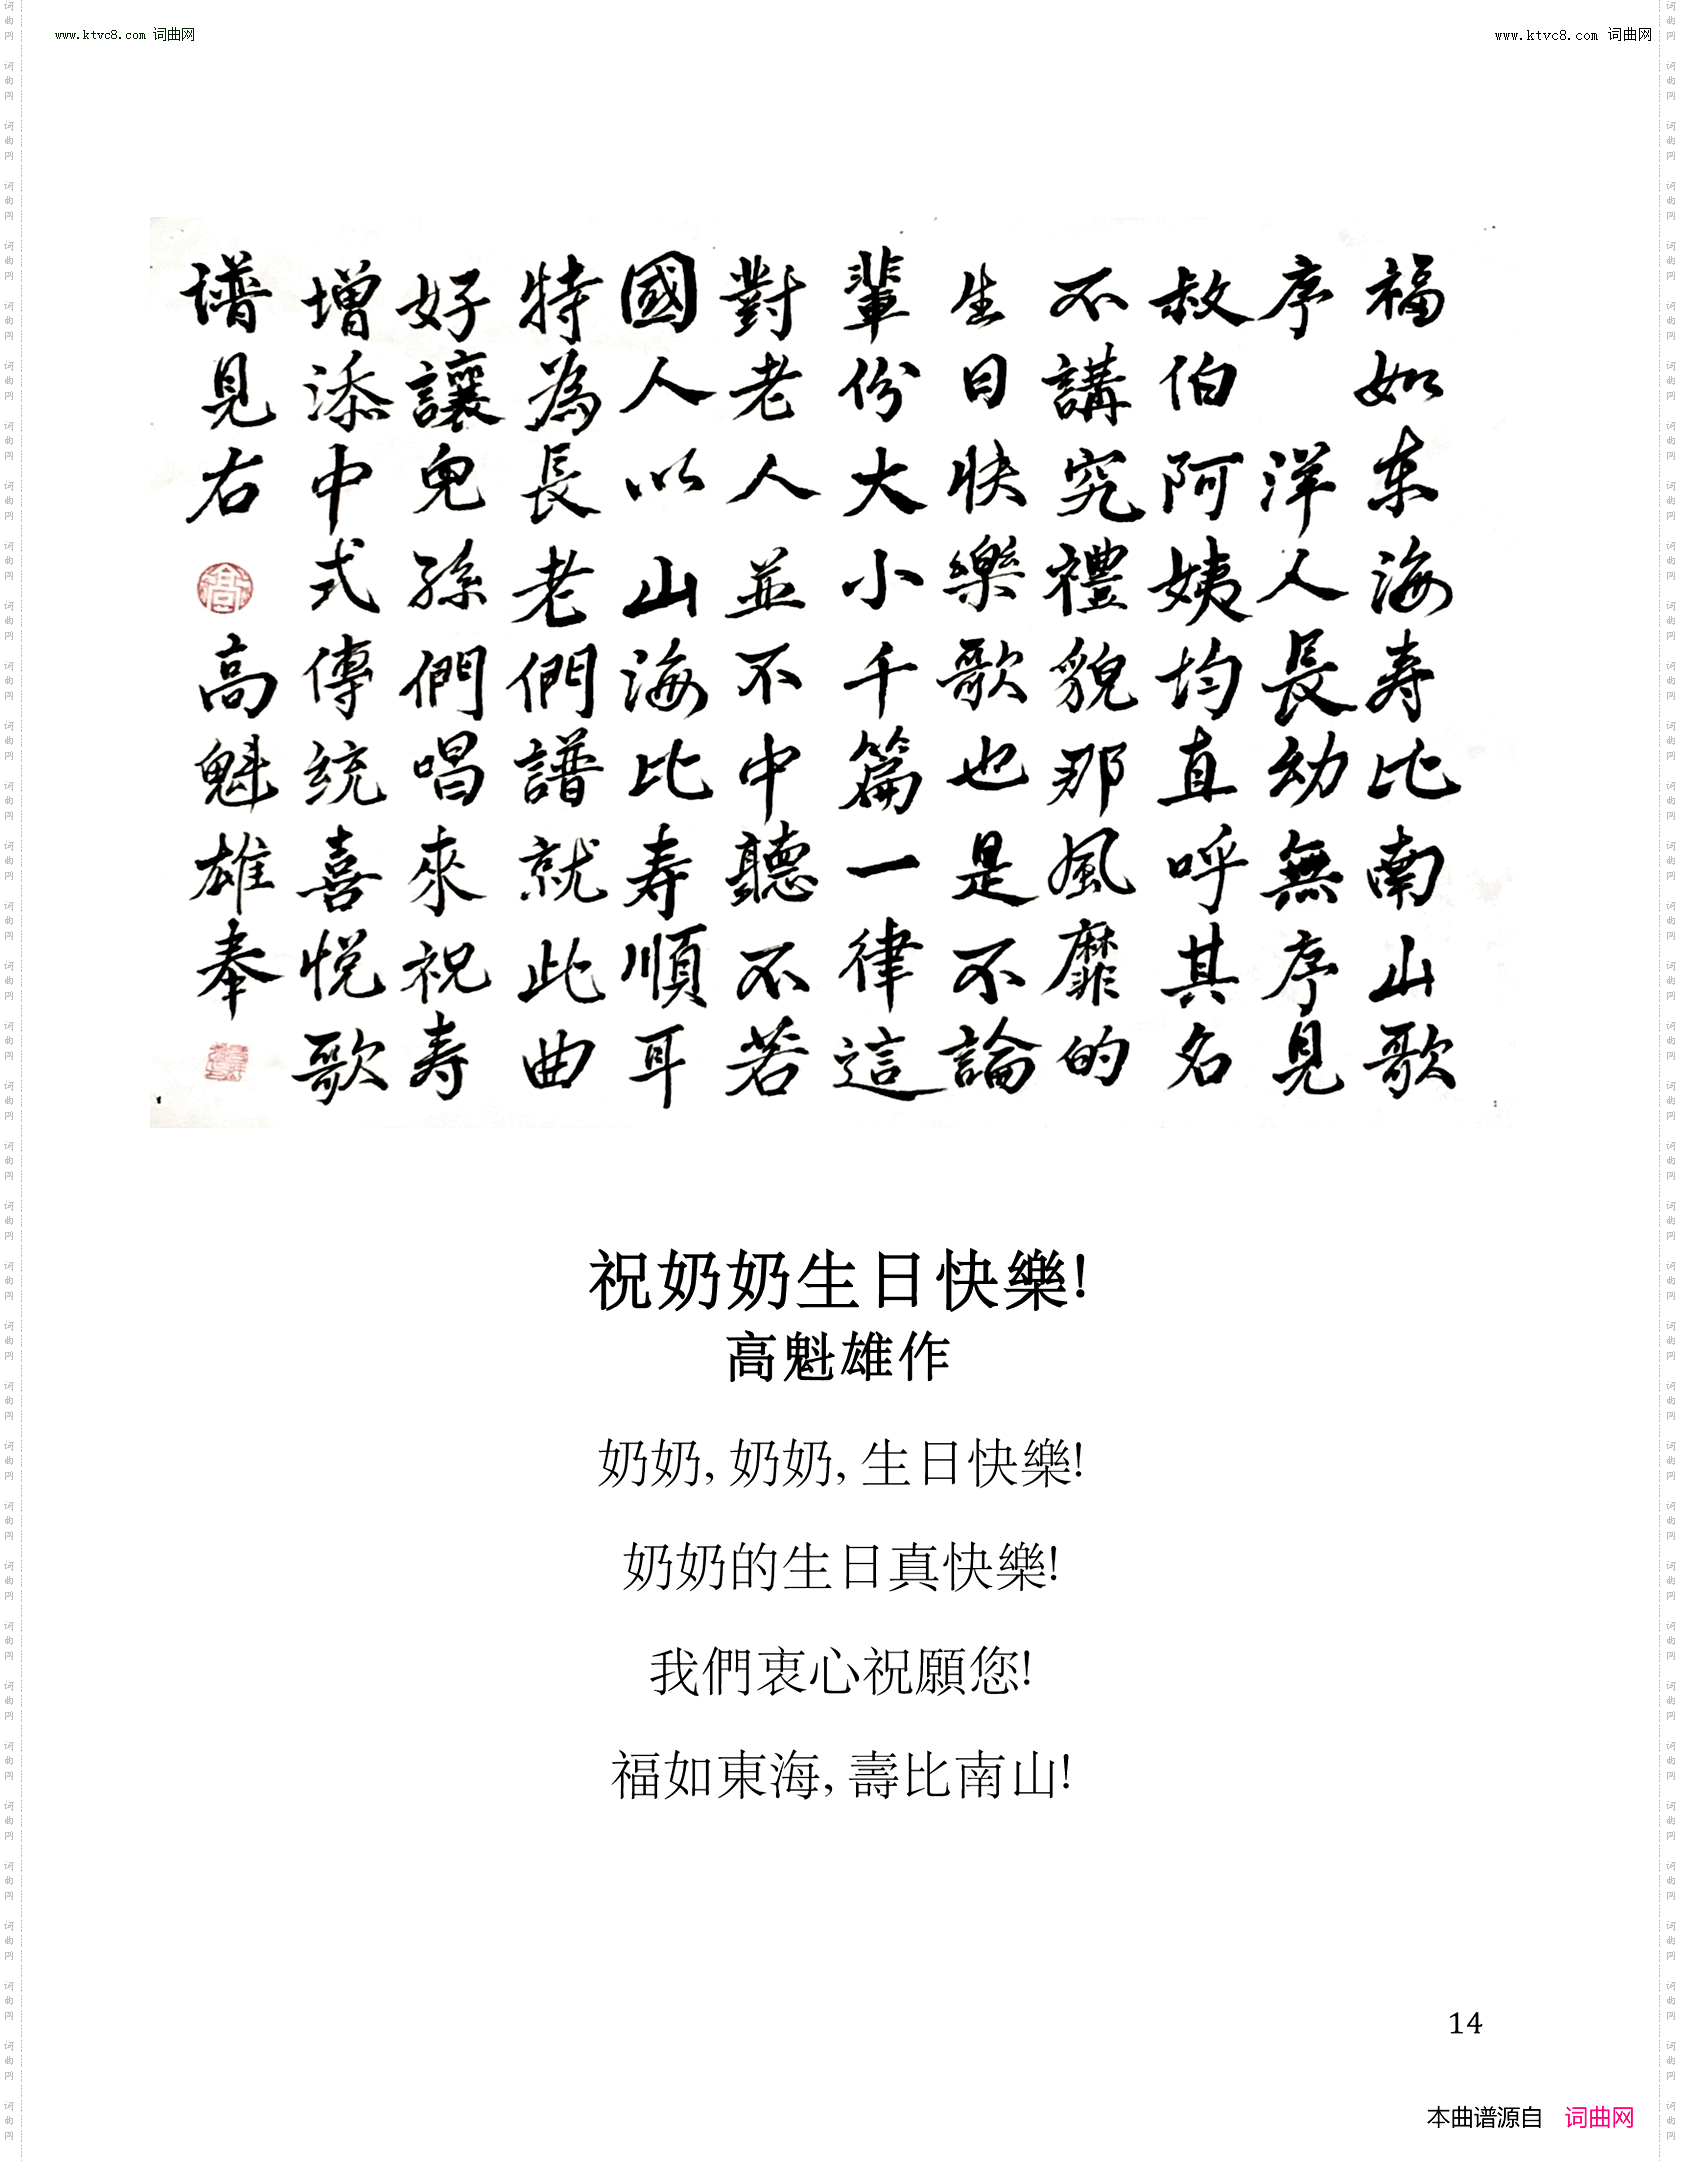 www.ktvc8.com 词曲网
www.ktvc8.com 词曲网
福如东海寿比南山歌
序 洋人長幼無序見
叔伯阿姨均直呼其名
不講究禮貌那風靡的
生日快樂歌也是不論
輩份大小千篇一律這
對老人並不中聽不若
國人以山海比寿順耳
特為長老們譜就此曲
好讓兒孫們唱來祝寿
增添中式傳统喜悦歌
谱見右
高魁雄奉
祝奶奶生日快樂!
高魁雄作
奶奶, 奶奶, 生日快樂!
奶奶的生日真快樂!
我們衷心祝願您!
福如東海, 壽比南山!
14
本曲谱源自 词曲网